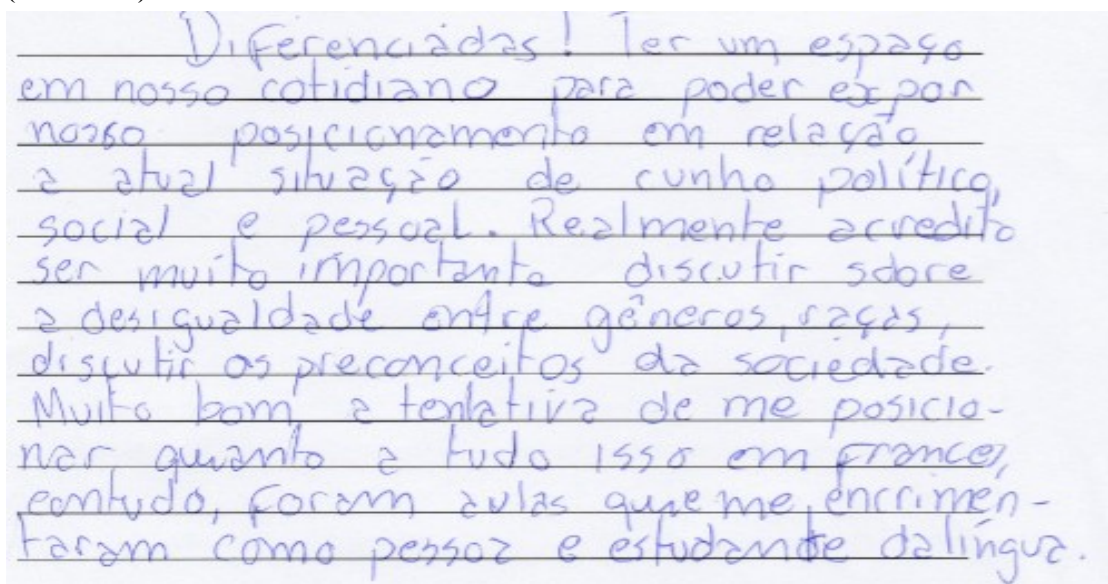 Diferenciadas! Ter um espaço
em nosso cotidiano para poder expor
nosso posicionamento em relação
a atual situação de cunho político,
social e pessoal. Realmente acredito
ser muito importante discutir sobre
a desigualdade entre gêneros, raças,
discutir os preconceitos da sociedade.
Muito bom a tentativa de me posicio-
nar quanto a tudo isso em frances,
contudo, foram aulas que me encrimen-
taram como pessoa e estudante da língua.